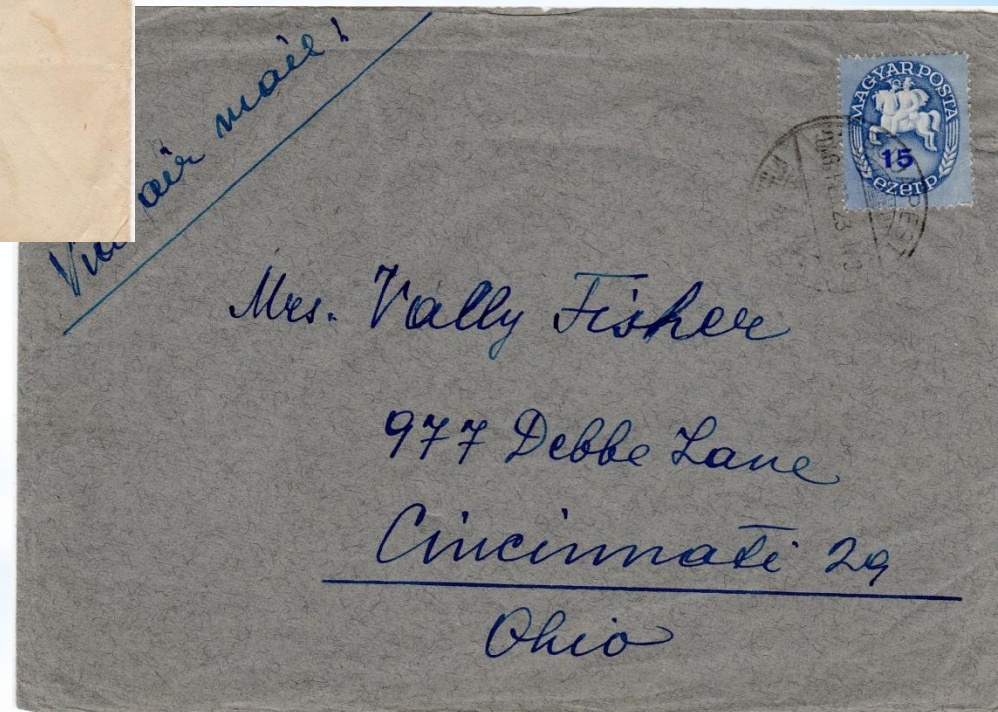 Via air mail!
MAGYAR POSTA
15
ezer p
Mrs. Vally Fisher
977 Debbe Lane
Cincinnati 29
Ohio